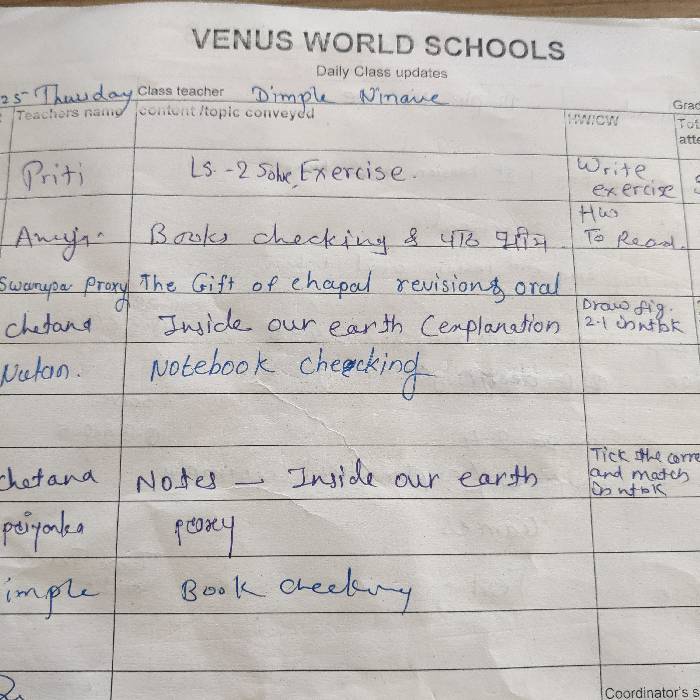 VENUS WORLD SCHOOLS
Daily Class updates
25 Thursday Class teacher Dimple Ninave
Grad
Teachers name content /topic conveyed HW/CW Tot
atte
Priti Ls - 2 Solve Exercise. Write
exercise
Books checking & पाठ HW
To Read.
Swarupa Proxy The Gift of chapal revision & oral
chetana Inside our earth (explanation Draw fig.
2.1 in ntbk
Nutan. Notebook checking
chetana Notes - Inside our earth Tick the corre
and match
in ntbk
Priyanka proxy
imple Book checking
Coordinator's S